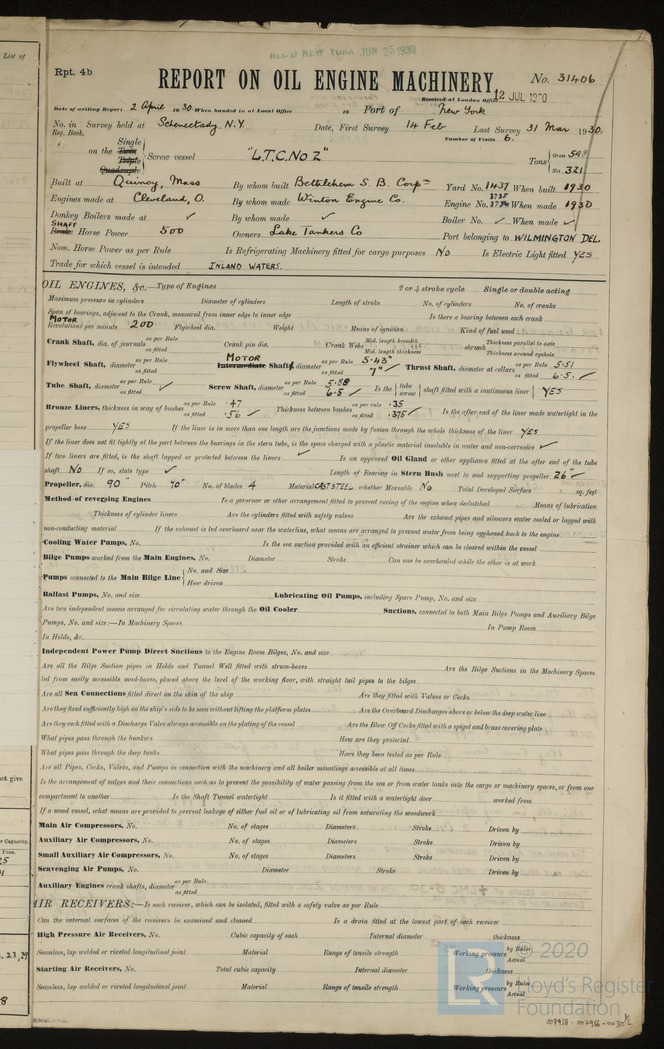 List of
REC'D NEW YORK JUN 25 1930
Rpt. 4b
REPORT ON OIL ENGINE MACHINERY.
No. 31406
Received at London Office 12 JUL 1930
Date of writing Report 2 April 1930 When handed in at Local Office 19 Port of New York
No. in Survey held at Schenectady, N.Y. Date, First Survey 14 Feb Last Survey 31 Mar 1930.
Reg. Book. Number of Visits 6.
on the Single Twin Triple Quadruple Screw vessel "L.T.C. No 2" Tons Gross 548 Net 321
Built at Quincy, Mass By whom built Bethlehem S. B. Corp Yard No. 1437 When built 1930
Engines made at Cleveland, O. By whom made Winton Engine Co. Engine No. When made 1930
Donkey Boilers made at ✓ By whom made ✓ Boiler No. ✓ When made ✓
SHAFT Brake Horse Power 500 Owners Lake Tankers Co Port belonging to WILMINGTON DEL.
Nom. Horse Power as per Rule Is Refrigerating Machinery fitted for cargo purposes No Is Electric Light fitted YES
Trade for which vessel is intended INLAND WATERS.
OIL ENGINES, &c.—Type of Engines 2 or 4 stroke cycle Single or double acting
Maximum pressure in cylinders Diameter of cylinders Length of stroke No. of cylinders No. of cranks
Span of bearings, adjacent to the Crank, measured from inner edge to inner edge Is there a bearing between each crank
MOTOR Revolutions per minute 200 Flywheel dia. Weight Means of ignition Kind of fuel used
Crank Shaft, dia. of journals as per Rule as fitted Crank pin dia. Crank Webs Mid. length breadth Mid. length thickness shrunk Thickness parallel to axis Thickness around eyehole
Flywheel Shaft, diameter as per Rule as fitted MOTOR Intermediate Shaft, diameter as per Rule 5.43" as fitted 7" ✓ Thrust Shaft, diameter at collars as per Rule 5.51 as fitted 6.5. ✓
Tube Shaft, diameter as per Rule as fitted ✓ Screw Shaft, diameter as per Rule 5.58 as fitted 6.5 ✓ Is the tube screw shaft fitted with a continuous liner YES
Bronze Liners, thickness in way of bushes as per Rule .47 as fitted .50 ✓ Thickness between bushes as per rule .35 as fitted .375 ✓ Is the after end of the liner made watertight in the
propeller boss YES If the liner is in more than one length are the junctions made by fusion through the whole thickness of the liner YES
If the liner does not fit tightly at the part between the bearings in the stern tube, is the space charged with a plastic material insoluble in water and non-corrosive ✓
If two liners are fitted, is the shaft lapped or protected between the liners ✓ Is an approved Oil Gland or other appliance fitted at the after end of the tube
shaft No If so, state type ✓ Length of Bearing in Stern Bush next to and supporting propeller 26" ✓
Propeller, dia. 90" Pitch 70" No. of blades 4 Material CAST STEEL whether Moveable No Total Developed Surface sq. feet
Method of reversing Engines Is a governor or other arrangement fitted to prevent racing of the engine when declutched Means of lubrication
Thickness of cylinder liners Are the cylinders fitted with safety valves Are the exhaust pipes and silencers water cooled or lagged with
non-conducting material If the exhaust is led overboard near the waterline, what means are arranged to prevent water from being syphoned back to the engine
Cooling Water Pumps, No. Is the sea suction provided with an efficient strainer which can be cleared within the vessel
Bilge Pumps worked from the Main Engines, No. Diameter Stroke Can one be overhauled while the other is at work
Pumps connected to the Main Bilge Line No. and Size How driven
Ballast Pumps, No. and size Lubricating Oil Pumps, including Spare Pump, No. and size
Are two independent means arranged for circulating water through the Oil Cooler Suctions, connected to both Main Bilge Pumps and Auxiliary Bilge
Pumps, No. and size:—In Machinery Spaces In Pump Room
In Holds, &c.
Independent Power Pump Direct Suctions to the Engine Room Bilges, No. and size
Are all the Bilge Suction pipes in Holds and Tunnel Well fitted with strum-boxes Are the Bilge Suctions in the Machinery Spaces
led from easily accessible mud-boxes, placed above the level of the working floor, with straight tail pipes to the bilges
Are all Sea Connections fitted direct on the skin of the ship Are they fitted with Valves or Cocks
Are they fixed sufficiently high on the ship's side to be seen without lifting the platform plates Are the Overboard Discharges above or below the deep water line
Are they each fitted with a Discharge Valve always accessible on the plating of the vessel Are the Blow Off Cocks fitted with a spigot and brass covering plate
What pipes pass through the bunkers How are they protected
What pipes pass through the deep tanks Have they been tested as per Rule
Are all Pipes, Cocks, Valves, and Pumps in connection with the machinery and all boiler mountings accessible at all times
Is the arrangement of valves and their connections such as to prevent the possibility of water passing from the sea or from water tanks into the cargo or machinery spaces, or from one
compartment to another Is the Shaft Tunnel watertight Is it fitted with a watertight door worked from
If a wood vessel, what means are provided to prevent leakage of either fuel oil or of lubricating oil from saturating the woodwork
Main Air Compressors, No. No. of stages Diameters Stroke Driven by
Auxiliary Air Compressors, No. No. of stages Diameters Stroke Driven by
Small Auxiliary Air Compressors, No. No. of stages Diameters Stroke Driven by
Scavenging Air Pumps, No. Diameter Stroke Driven by
Auxiliary Engines crank shafts, diameter as per Rule as fitted
AIR RECEIVERS:—Is each receiver, which can be isolated, fitted with a safety valve as per Rule
Can the internal surfaces of the receivers be examined and cleaned Is a drain fitted at the lowest part of each receiver
High Pressure Air Receivers, No. Cubic capacity of each Internal diameter thickness
Seamless, lap welded or riveted longitudinal joint Material Range of tensile strength Working pressure by Rules Actual
Starting Air Receivers, No. Total cubic capacity Internal diameter thickness
Seamless, lap welded or riveted longitudinal joint Material Range of tensile strength Working pressure by Rules Actual
© 2020
Lloyd's Register
Foundation
007958-007966-0030 1/2
ENGLAND.
not give
Capacity.
Tons.